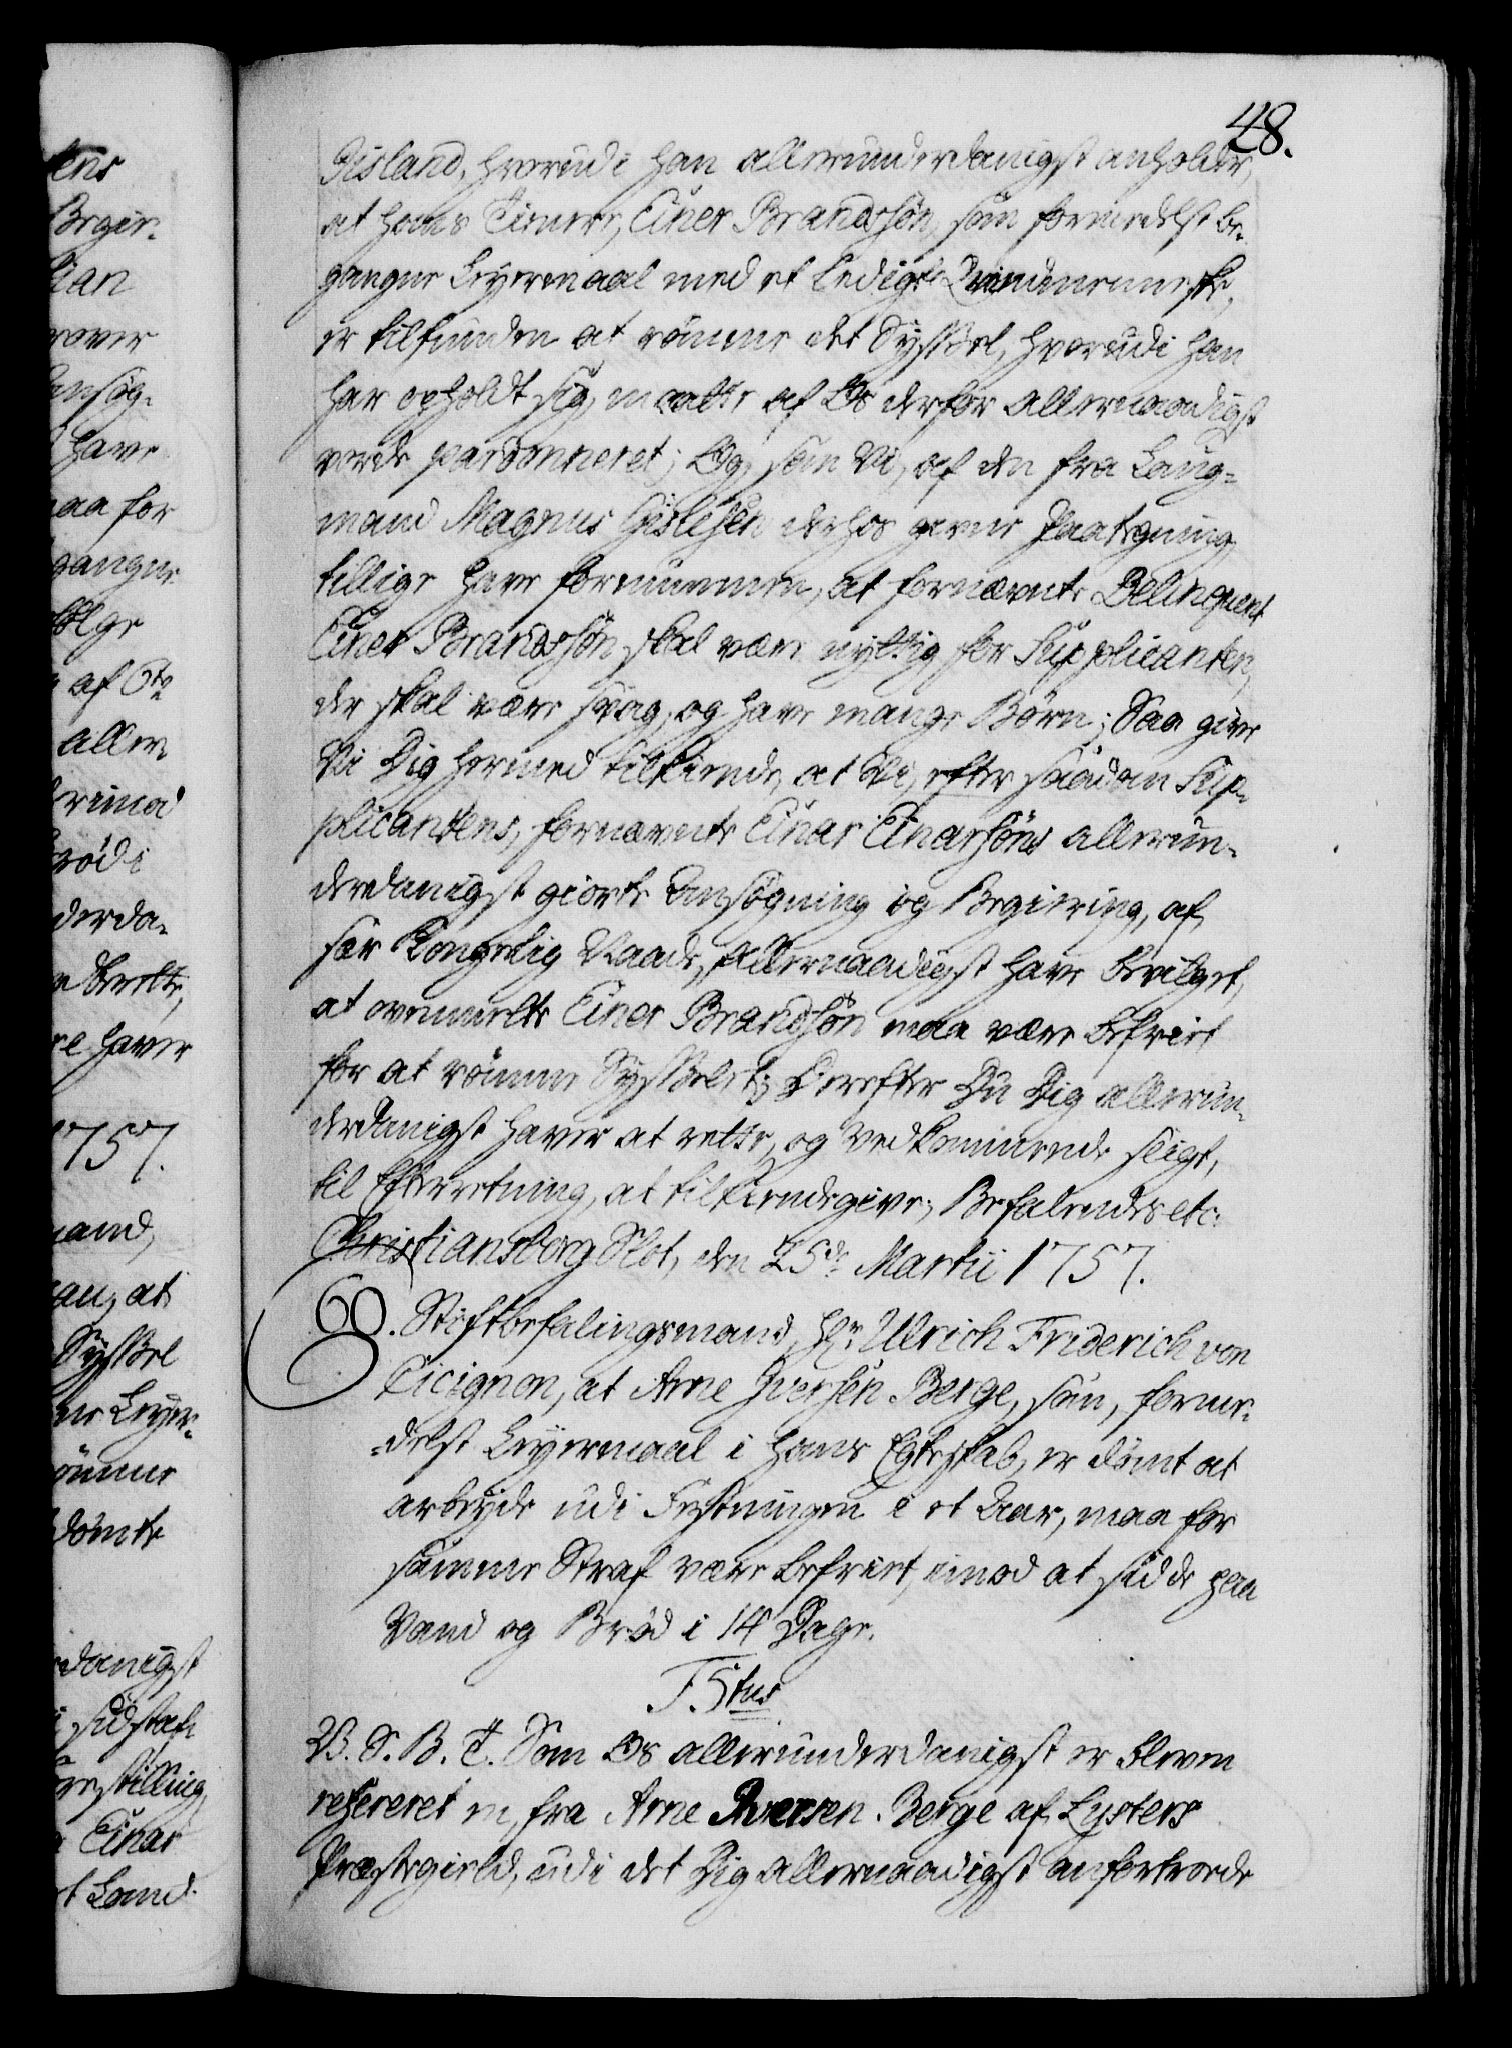 48.
Iisland, hvorudi han allerunderdanigst anholder,
at hans Tienere, Einer Brandssøn, som formedelst be-
gangne Leyermaal med et Ledigt Qvindmenneske,
er tilfunden at rømme det Syssel, hvorudi han
har opholdt sig, maatte af Os derfor allernaadigst
vorde pardonneret; Og, som Vi, af den fra Laug-
mand Magnus Gislesen derhos givne Paategning
tillige have fornummen, at fornævnte Delinquent
Einer Brandssøn skal være nyttig for Supplicanten,
der skal være svag, og have mange Børn; Saa give
Vi Dig hermed tilkiende, at Vi, efter saadan Sup-
plicantens, fornævnte Einar Einarsøns allerun-
derdanigst giorte Ansøgning og Begiering, af
sær Kongelig Naade, allernaadigst have bevilget,
at ovenmelte Einer Brandssøn maa være befriet
for at rømme Sysselet; Derefter Du Dig allerun-
derdanigst haver at rette, og Vedkommende sligt,
til Efterretning, at tilkiendegive; Befalendes etc:
Christiansborg Slot, den 25de Martii 1757.
60. Stiftbefalingsmand, Hr. Ulrich Friderich von
Cicignon, at Arne Iversen Berge, som, forme-
-delst Leyermaal i hans Egteskab, er dømt at
arbeyde udi Festningen i et Aar, maa for
samme Straf være befriet, imod at sidde paa
Vand og Brød i 14 Dage.
F. 5tus
V. S. B. T. Som Os allerunderdanigst er bleven
refereret en, fra Arne Iversen Berge af Lysters
Præstegield, udi det Dig allernaadigst anfortroede